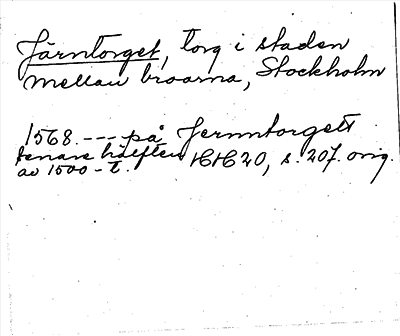 Järntorget, torg i staden
mellan broarna, Stockholm
1568. --- på Jernntorgett
senare hälften HH 20, s. 207. orig.
av 1500-t.